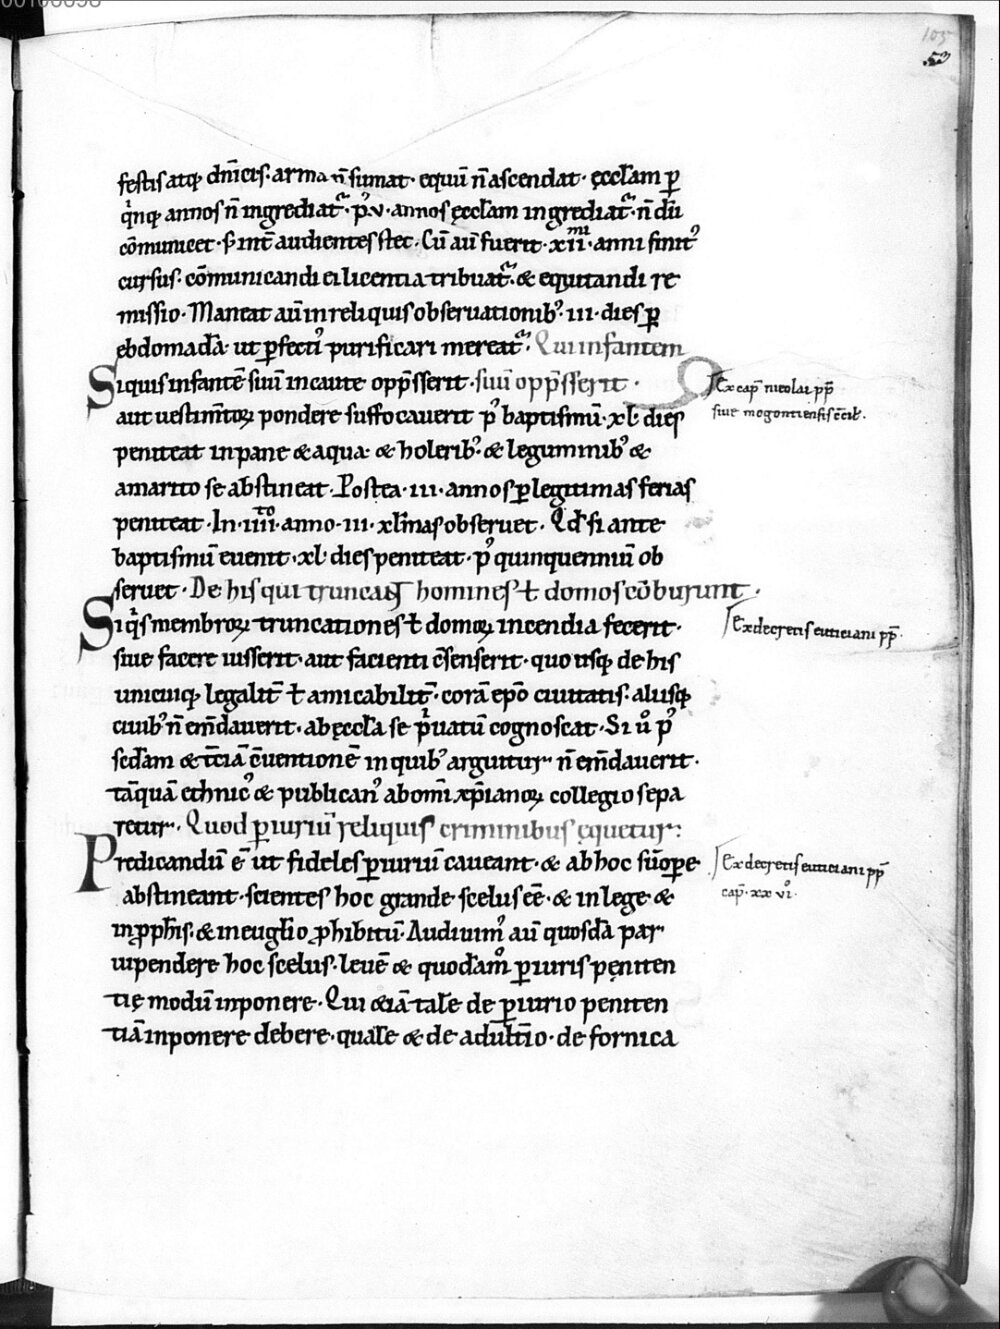 105
53
festis atq; dn̄icis. arma n̄ sumat. equū n̄ ascendat. ęccłam ꝑ
q̇nq; annos n̄ ingrediat᷑. p᷒.v. annos ęccłam ingrediat᷑. n̄ dū
cōmunicet. s; int̄ audientes stet. Cū aū fuerit. xii. anni finit᷒
cursus. cōmunicandi ei licentia tribuat᷑. & equitandi re
missio. Maneat aū in reliquis obseruationib᷒. iii. dies ꝑ
ebdomadā. ut ꝑfecti᷒ purificari mereat᷑. Qui infantem
Siquis infantē suū incaute opp̄sserit. suū opp̄sserit.
Ex cap̄ nicolai pp̄
siue mogontiensis c̄cil̄.
aut uestim̄toꝝ pondere suffocauerit p᷒ baptismū. xl. dies
peniteat in pane & aqua. & holerib᷒. & leguminib᷒ &
a marito se abstineat. Postea. iii. annos ꝑ legitimas ferias
peniteat. In. iiii.to anno. iii. xl̄mas obseruet. Qd̄ si ante
baptismū euenit. xl. dies peniteat. p᷒ quinquenniū ob
seruet. De his qui truncat̄ homines ł domos cōburunt.
Si q̇s membroꝝ truncationes ł domoꝝ incendia fecerit.
Ex decretis euticiani pp̄.
siue facere iusserit. aut facienti c̄senserit. quo usq; de his
unicuiq; legalit̄ ł amicabilit̄. corā ep̄o ciuitatis. aliisq;
ciuib᷒ n̄ em̄dauerit. ab ęccła se p̓uatū cognoscat. Si u̓ p᷒
sc̄dam & t̄ciā c̄uentionē in quib᷒ arguitur n̄ em̄dauerit.
tāquā ethnic᷒ & publican᷒ ab om̄i xp̄ianoꝝ collegio sepa
retur. Quod ꝑiuriū reliquis criminibus ęquetur:
Predicandū ē ut fideles ꝑiuriū caueant. & ab hoc sūoꝑe
Ex decretis euticiani pp̄
cap̄. xxvi.
abstineant. scientes hoc grande scelus eē. & in lege &
in ꝓph̄is. & in euglio ꝓhibitū. Audiuim᷒ aū quosdā par
uipendere hoc scelus. leuē & quodam̊ ꝑiuris pęniten
tię modū inponere. Qui &iā tale de ꝑiurio peniten
tiā inponere debere. quale & de adultīo. de fornica